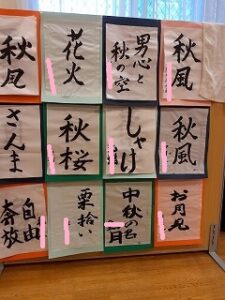 秋風
花火
男心と
秋の空
秋風
さんま
秋桜
しゃけ
秋風
自由
奔放
栗拾い
中秋の名月
お月見